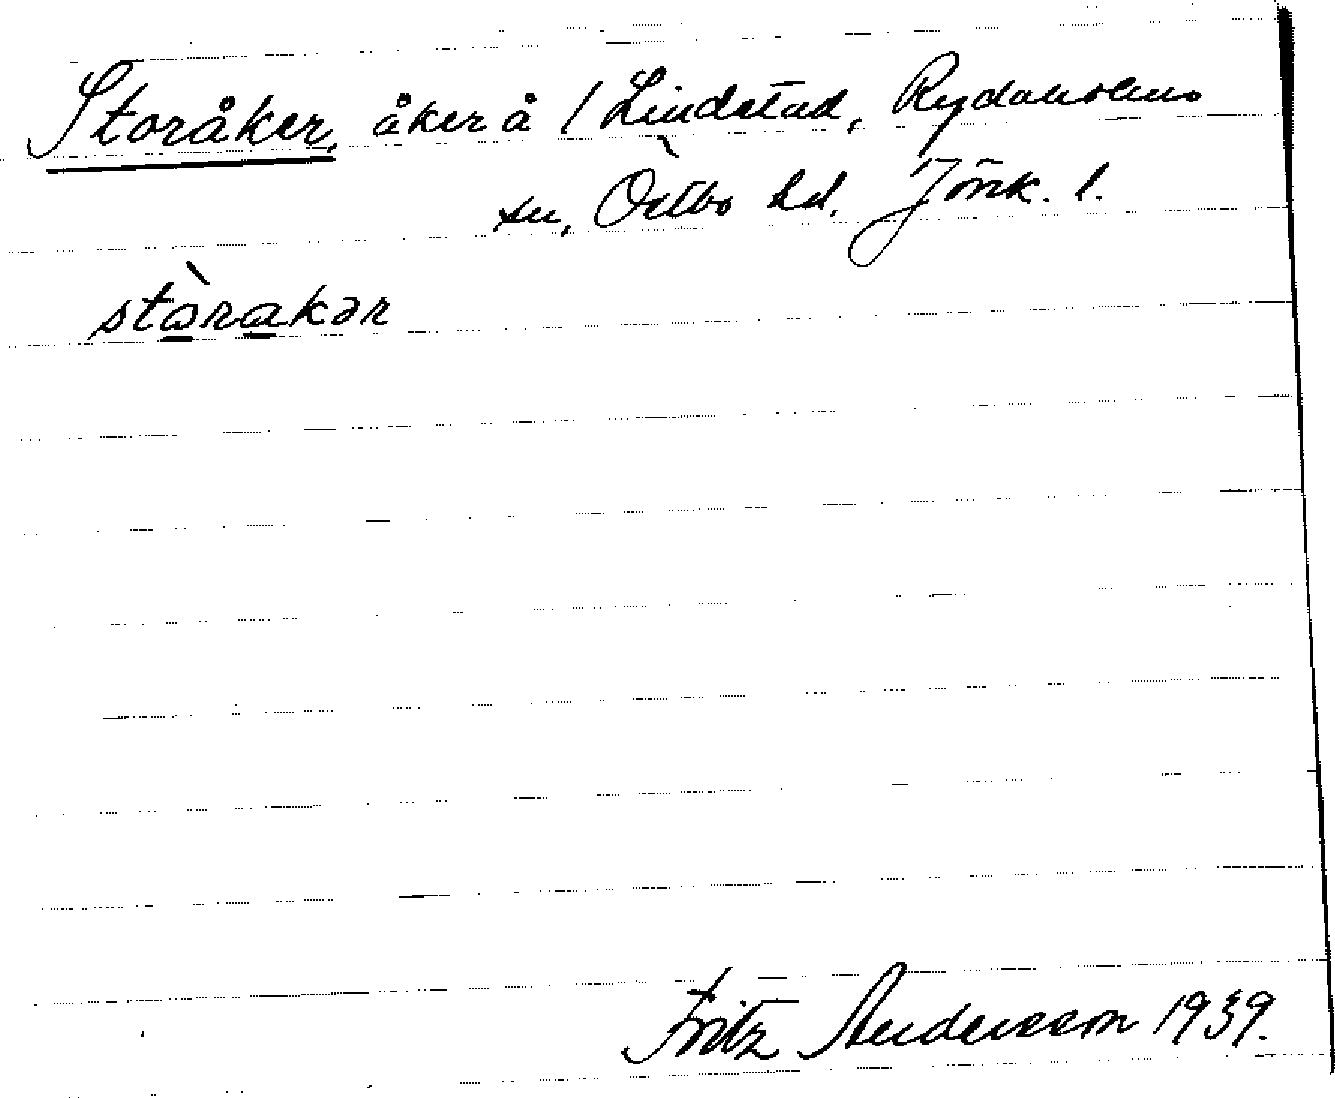 Storåker, åker å / Lindstad, Rydaholms
sn, Östbo hd, Jönk. l.
stòrakər
Fritz Andersson 1939.